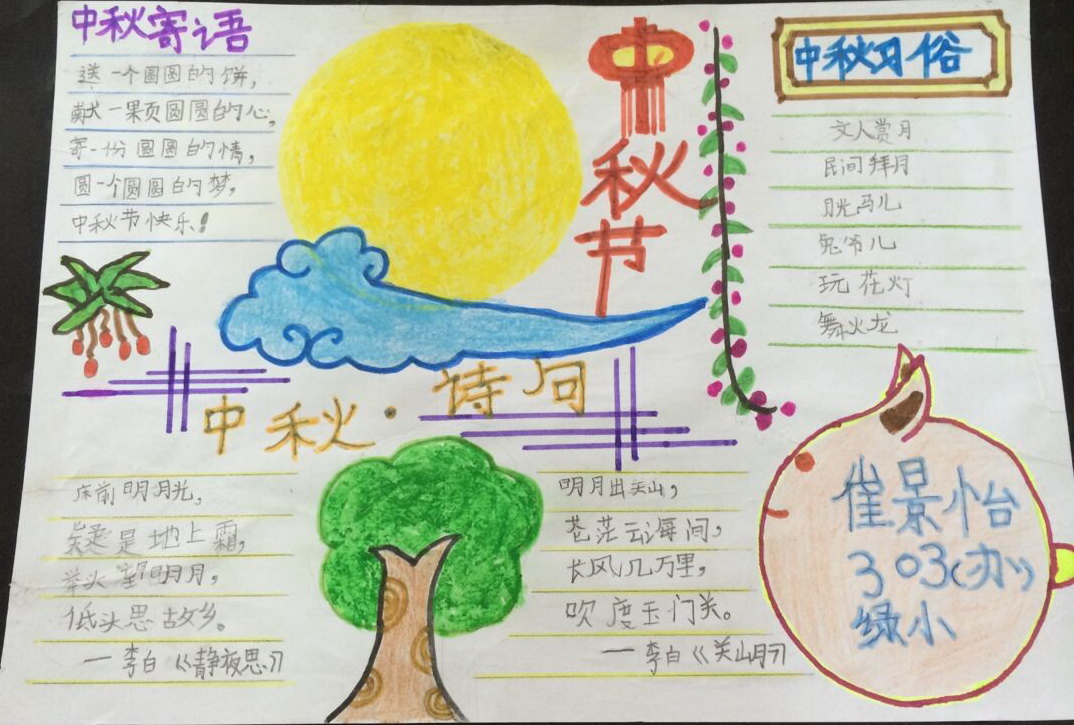 中秋寄语
送一个圆圆的饼，
献一果页圆圆的心，
寄一份圆圆的情，
圆一个圆圆的梦，
中秋节快乐！
中秋节
中秋习俗
文人赏月
民间拜月
月光马儿
兔爷儿
玩花灯
舞火龙
中秋·诗问
床前明月光，
疑是地上霜，
举头望明月，
低头思故乡。
一李白《静夜思》
明月出关山，
苍茫云海间，
长风几万里，
吹度玉门关。
一李白《关山月》
崔景怡
303(办)
绿小